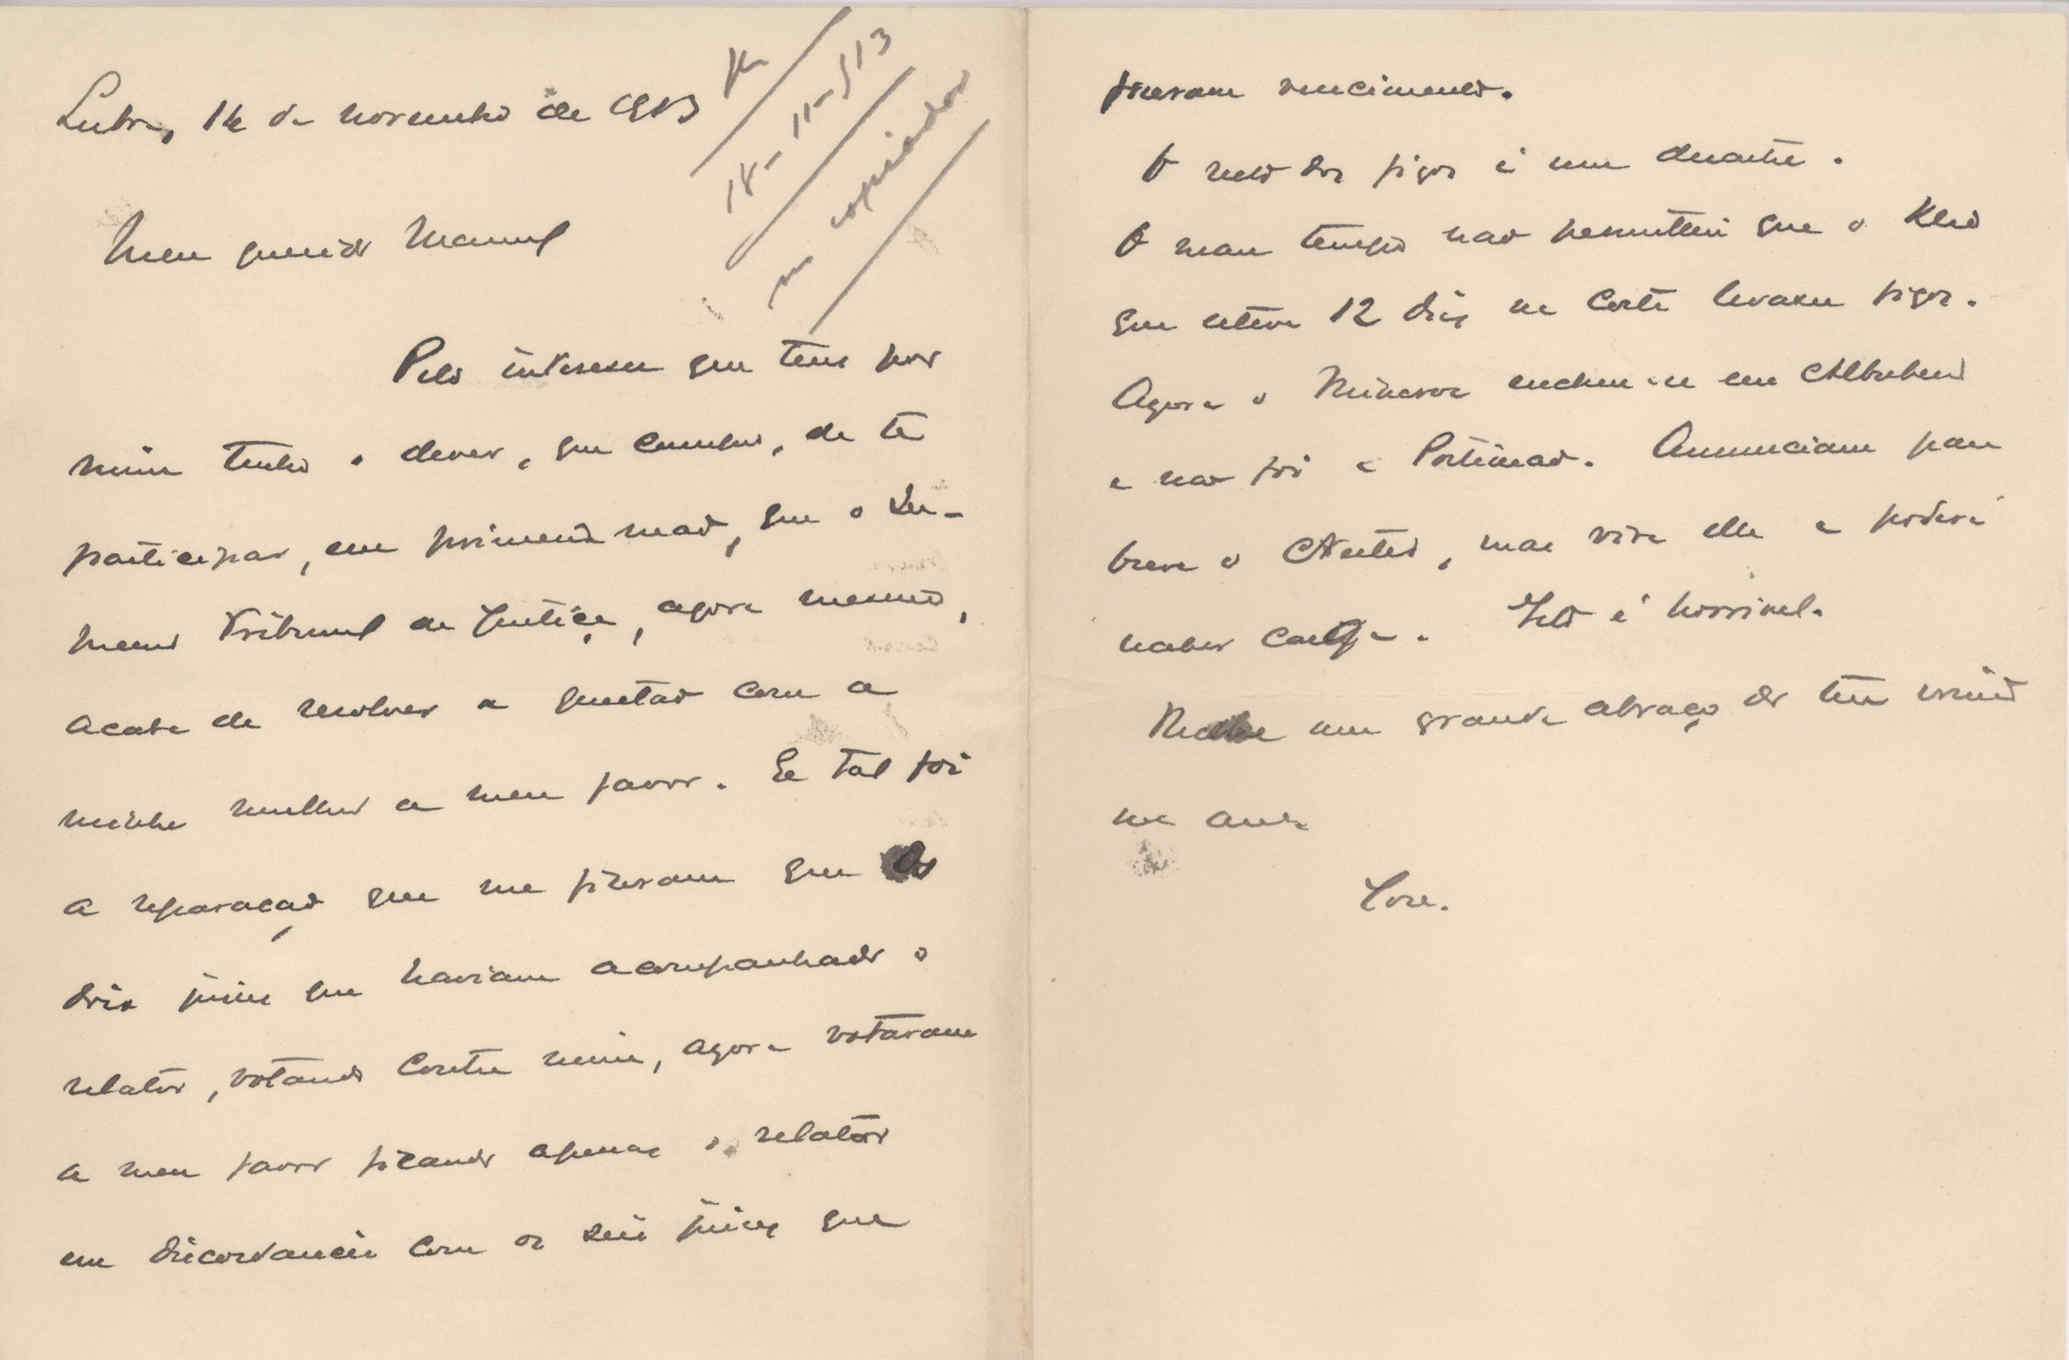 Lisboa, 14 de novembro de 1913
R
18-11-913
no copiador
Meu querido Manuel
Pelo interesse que tens por
mim tenho o dever, que cumpro, de te
participar, em primeira mão, que o Su-
premo Tribunal de Justiça, agora mesmo,
acaba de resolver a questão com a
minha mulher a meu favor. E tal foi
a reparação que me fizeram que os
dois juizes que haviam acompanhado o
relator, votando contra mim, agora votaram
a meu favor ficando apenas o relator
em discordancia com os seis juizes que
fizeram vencimento.
O  dos figos é um desastre.
O mau tempo não permittiu que o
que esteve 12 dias na costa levasse figos.
Agora o Minerva encheu-se em Albufeira
e não foi a Portimão. Anunciam para
breve o , mas virá elle e poderá
haber carga. Isto é horrivel.
Recebe um grande abraço do teu irmão
m.to am.o
José.